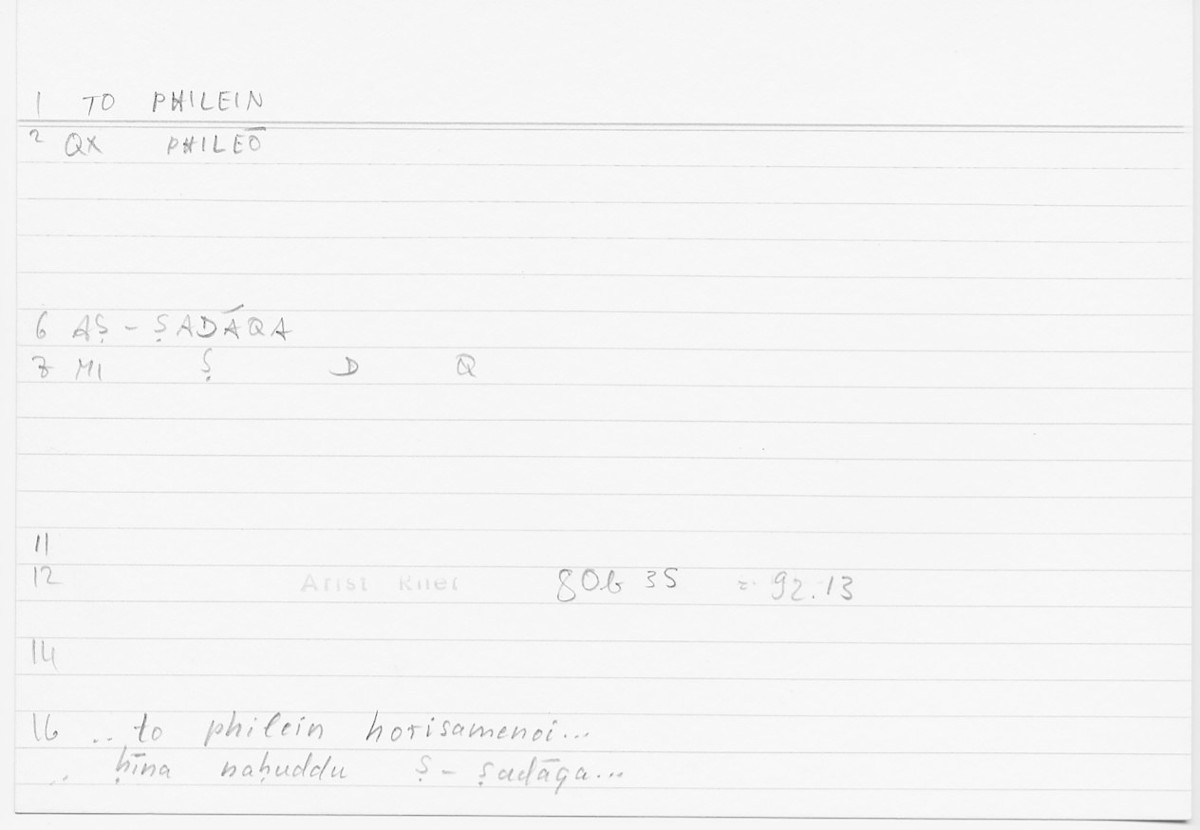 1 TO PHILEIN
2 QX PHILEŌ
6 AṢ - ṢADĀQA
7 MI Ṣ D Q
11
12 Arist Rhet 80b 35 = 92.13
14
16 .. to philein horisamenoi...
.. ḥīna naḥuddu ṣ - ṣadāqa...